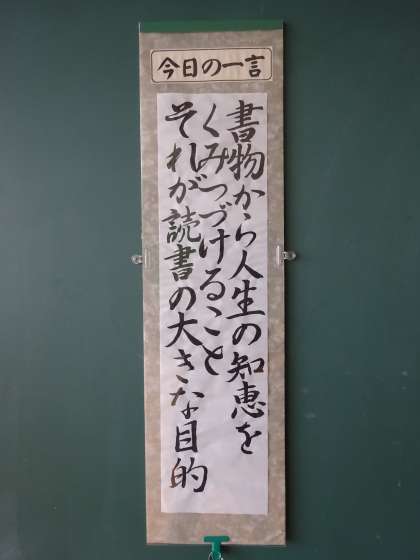 今日の一言
書物から人生の知恵を
くみつづけること
それが読書の大きな目的